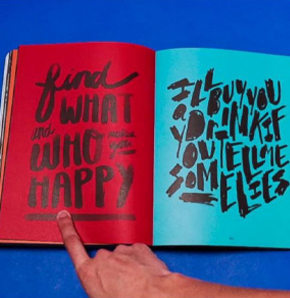 find
WHAT
and
WHO makes
you
HAPPY
I'LL
BUY YOU
A DRINK IF
YOU TELL ME
SOME LIES